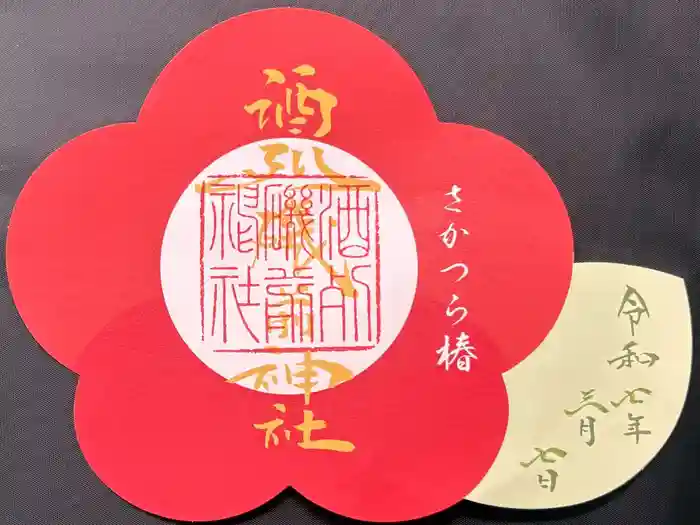 酒列磯前神社
酒列磯前神社
さかつら椿
令和七年
三月
七日